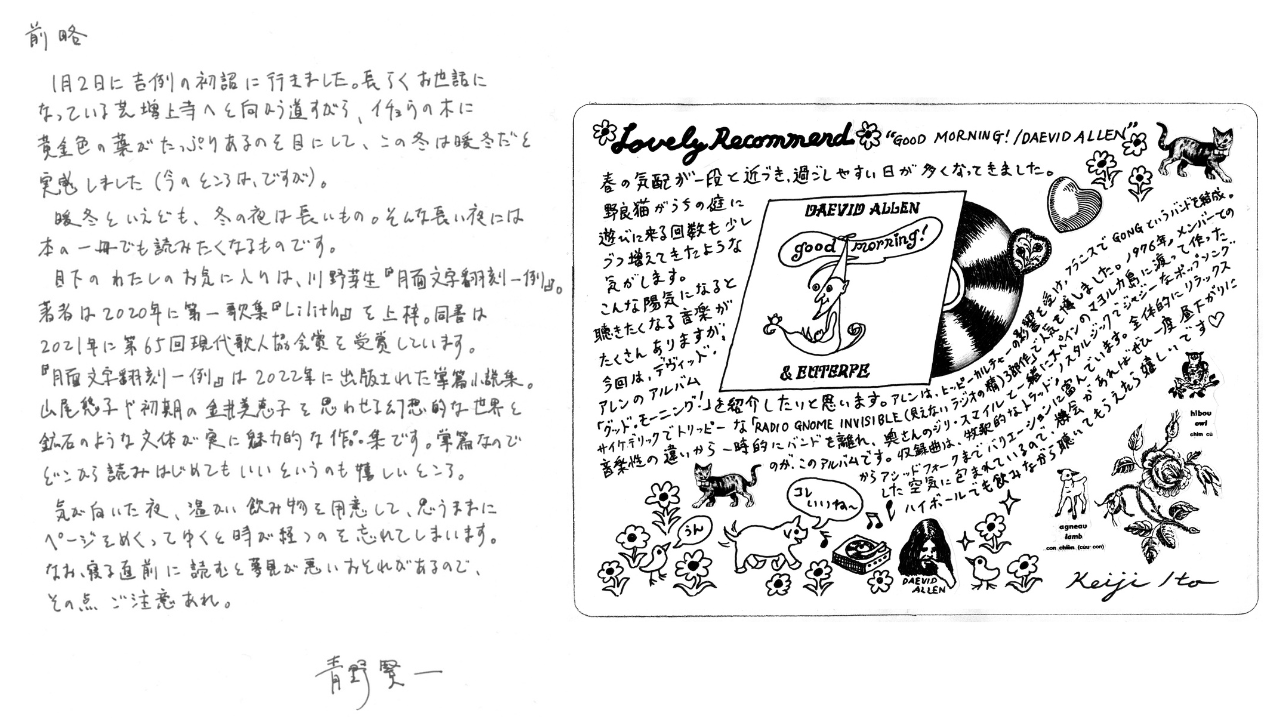 前略
1月2日に吉例の初詣に行きました。長らくお世話に
なっている芝増上寺へと向かう道すがら、イチョウの木に
黄金色の葉がたっぷりあるのを目にして、この冬は暖冬だと
実感しました(今のところは、ですが)。
暖冬といえども、冬の夜は長いもの。そんな長い夜には
本の一冊でも読みたくなるものです。
目下のわたしのお気に入りは、川野芽生『月面文字翻刻一例』。
著者は2020年に第一歌集『Lilith』を上梓。同書は
2021年に第65回現代歌人協会賞を受賞しています。
『月面文字翻刻一例』は2022年に出版された掌篇小説集。
山尾悠子や初期の金井美恵子を思わせる幻想的な世界と
鉱石のような文体が実に魅力的な作品集です。掌篇なので
どこから読みはじめてもいいというのも嬉しいところ。
気が向いた夜、温かい飲み物を用意して、思うままに
ページをめくってゆくと時が経つのを忘れてしまいます。
なお、寝る直前に読むと夢見が悪いおそれがあるので、
その点ご注意あれ。
青野賢一
Lovely Recommend "GOOD MORNING! / DAEVID ALLEN"
春の気配が一段と近づき、過ごしやすい日が多くなってきました。
野良猫がうちの庭に
遊びに来る回数も少し
づつ増えてきたような
気がします。
こんな陽気になると
聴きたくなる音楽が
たくさんありますが、
今回は、デヴィッド・
アレンのアルバム
「グッド・モーニング!」を紹介したいと思います。アレンは、ヒッピーカルチャーの影響を受け、フランスでGONGというバンドを結成。
サイケデリックでトリッピーな「RADIO GNOME INVISIBLE(見えないラジオの精)3部作」で人気を博しました。1976年、メンバーでの
音楽性の違いから一時的にバンドを離れ、奥さんのジリ・スマイルと一緒にスペインのマヨルカ島に渡って作った
のが、このアルバムです。収録曲は、牧歌的なトラッド、ノスタルジックでジャジーなポップソング
からアシッドフォークまでバリエーションに富んでいます。全体的にリラックス
した空気に包まれているので、機会があればぜひ一度昼下がりに
ハイボールでも飲みながら聴いてもらえたら嬉しいです♡
DAEVID ALLEN
good morning!
& EUTERPE
コレ
いいね〜
うん
DAEVID
ALLEN
hibou
owl
agneau
lamb
Keiji Ito